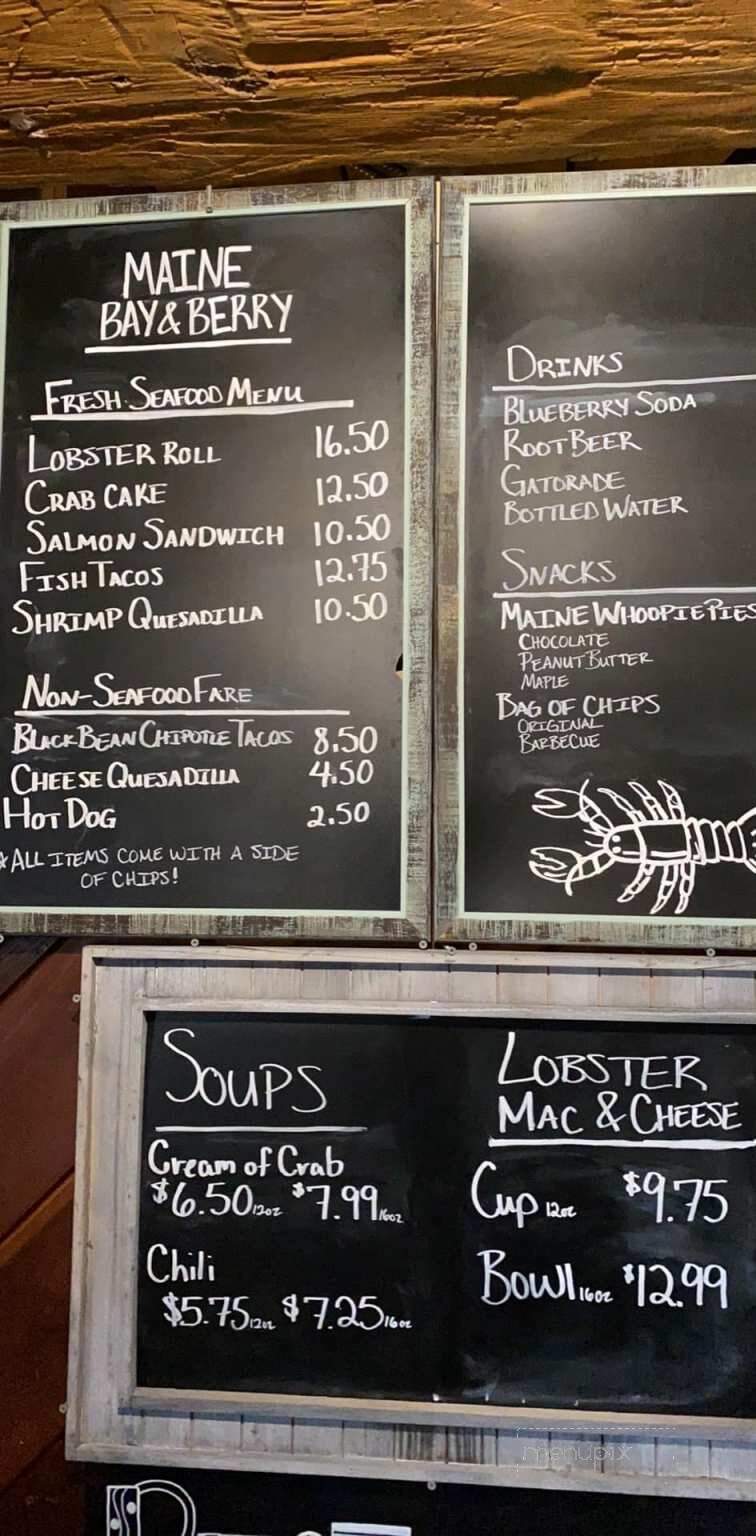 MAINE
BAY & BERRY
FRESH SEAFOOD MENU
LOBSTER ROLL 16.50
CRAB CAKE 12.50
SALMON SANDWICH 10.50
FISH TACOS 12.75
SHRIMP QUESADILLA 10.50
NON-SEAFOOD FARE
BLACK BEAN CHIPOTLE TACOS 8.50
CHEESE QUESADILLA 4.50
HOT DOG 2.50
*ALL ITEMS COME WITH A SIDE
OF CHIPS!
DRINKS
BLUEBERRY SODA
ROOT BEER
GATORADE
BOTTLED WATER
SNACKS
MAINE WHOOPIE PIES
CHOCOLATE
PEANUT BUTTER
MAPLE
BAG OF CHIPS
ORIGINAL
BARBECUE
SOUPS
Cream of Crab
$6.50 12oz $7.99 16oz
Chili
$5.75 12oz $7.25 16oz
LOBSTER
MAC & CHEESE
Cup 12oz $9.75
Bowl 16oz $12.99
menupix